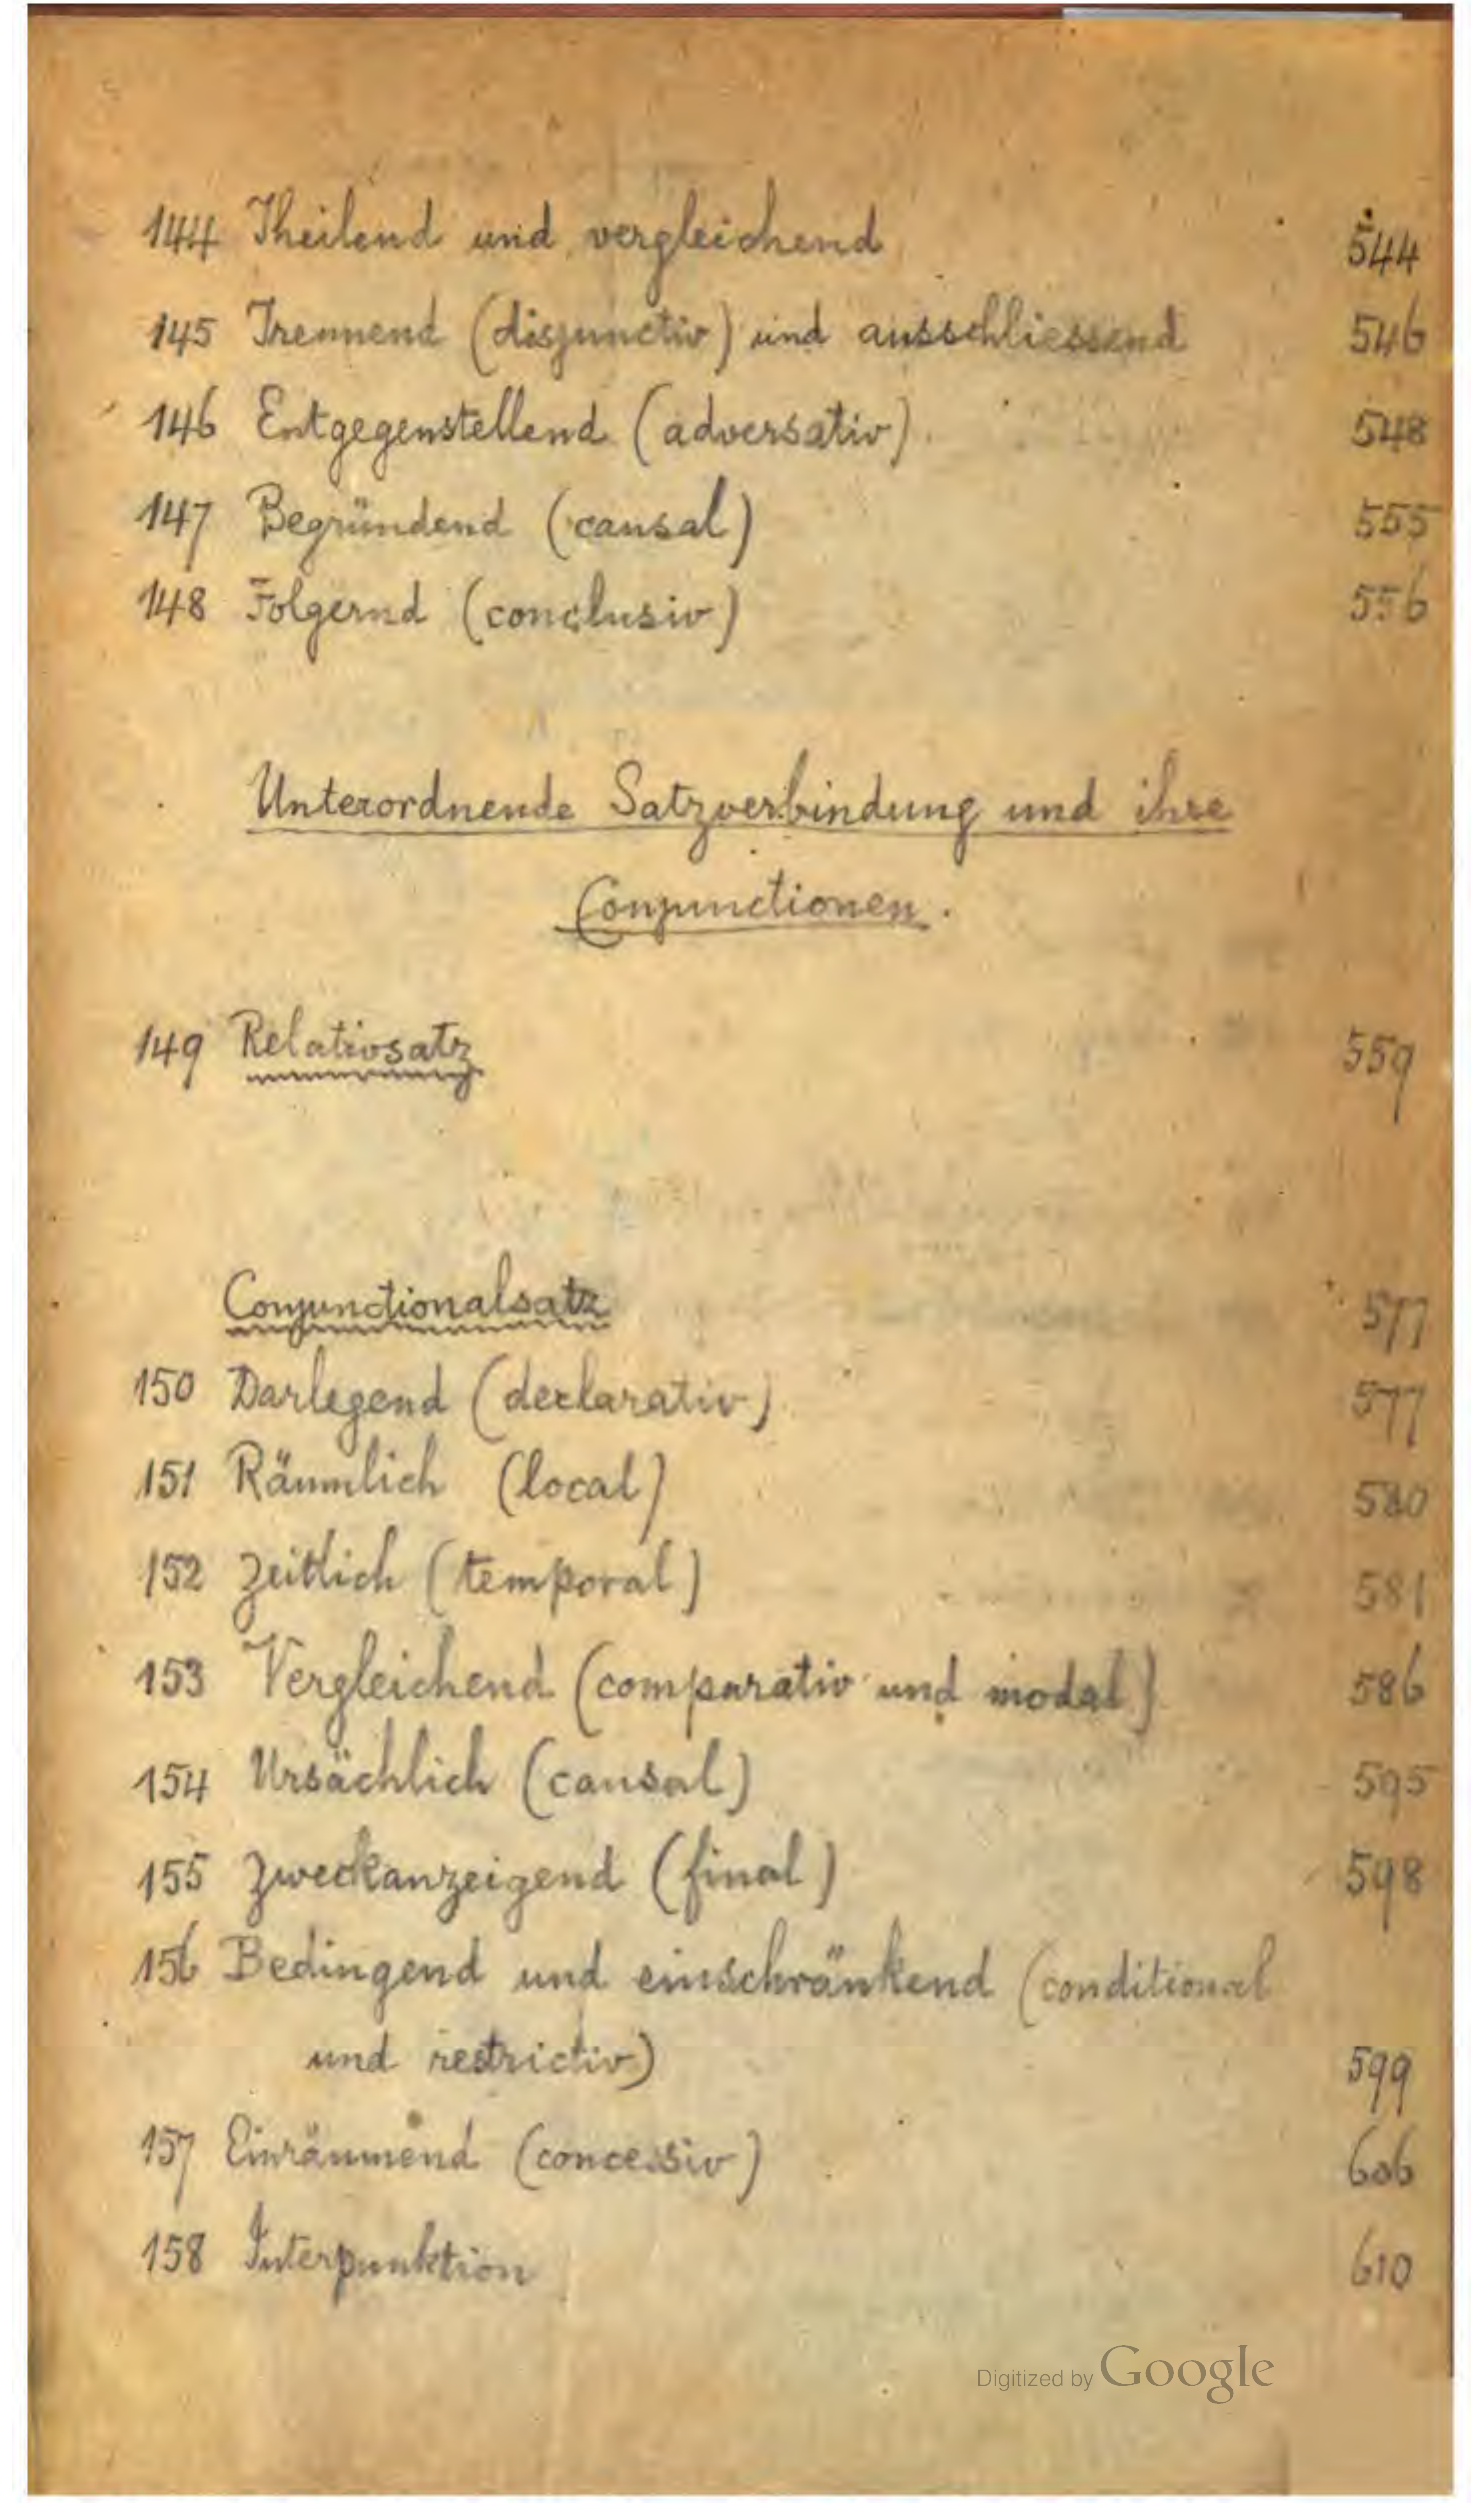 144 Theilend und vergleichend 544
145 Trennend (disjunctiv) und ausschliessend 546
146 Entgegenstellend (adversativ) 548
147 Begründend (causal) 555
148 Folgernd (conclusiv) 556
Unterordnende Satzverbindung und ihre
Conjunctionen.
149 Relativsatz 559
Conjunctionalsatz 577
150 Darlegend (declarativ) 577
151 Räumlich (local) 580
152 Zeitlich (temporal) 581
153 Vergleichend (comparativ und modal) 586
154 Ursächlich (causal) 595
155 Zweckanzeigend (final) 598
156 Bedingend und einschränkend (conditional
und restrictiv) 599
157 Einräumend (concessiv) 606
158 Interpunktion 610
Digitized by Google